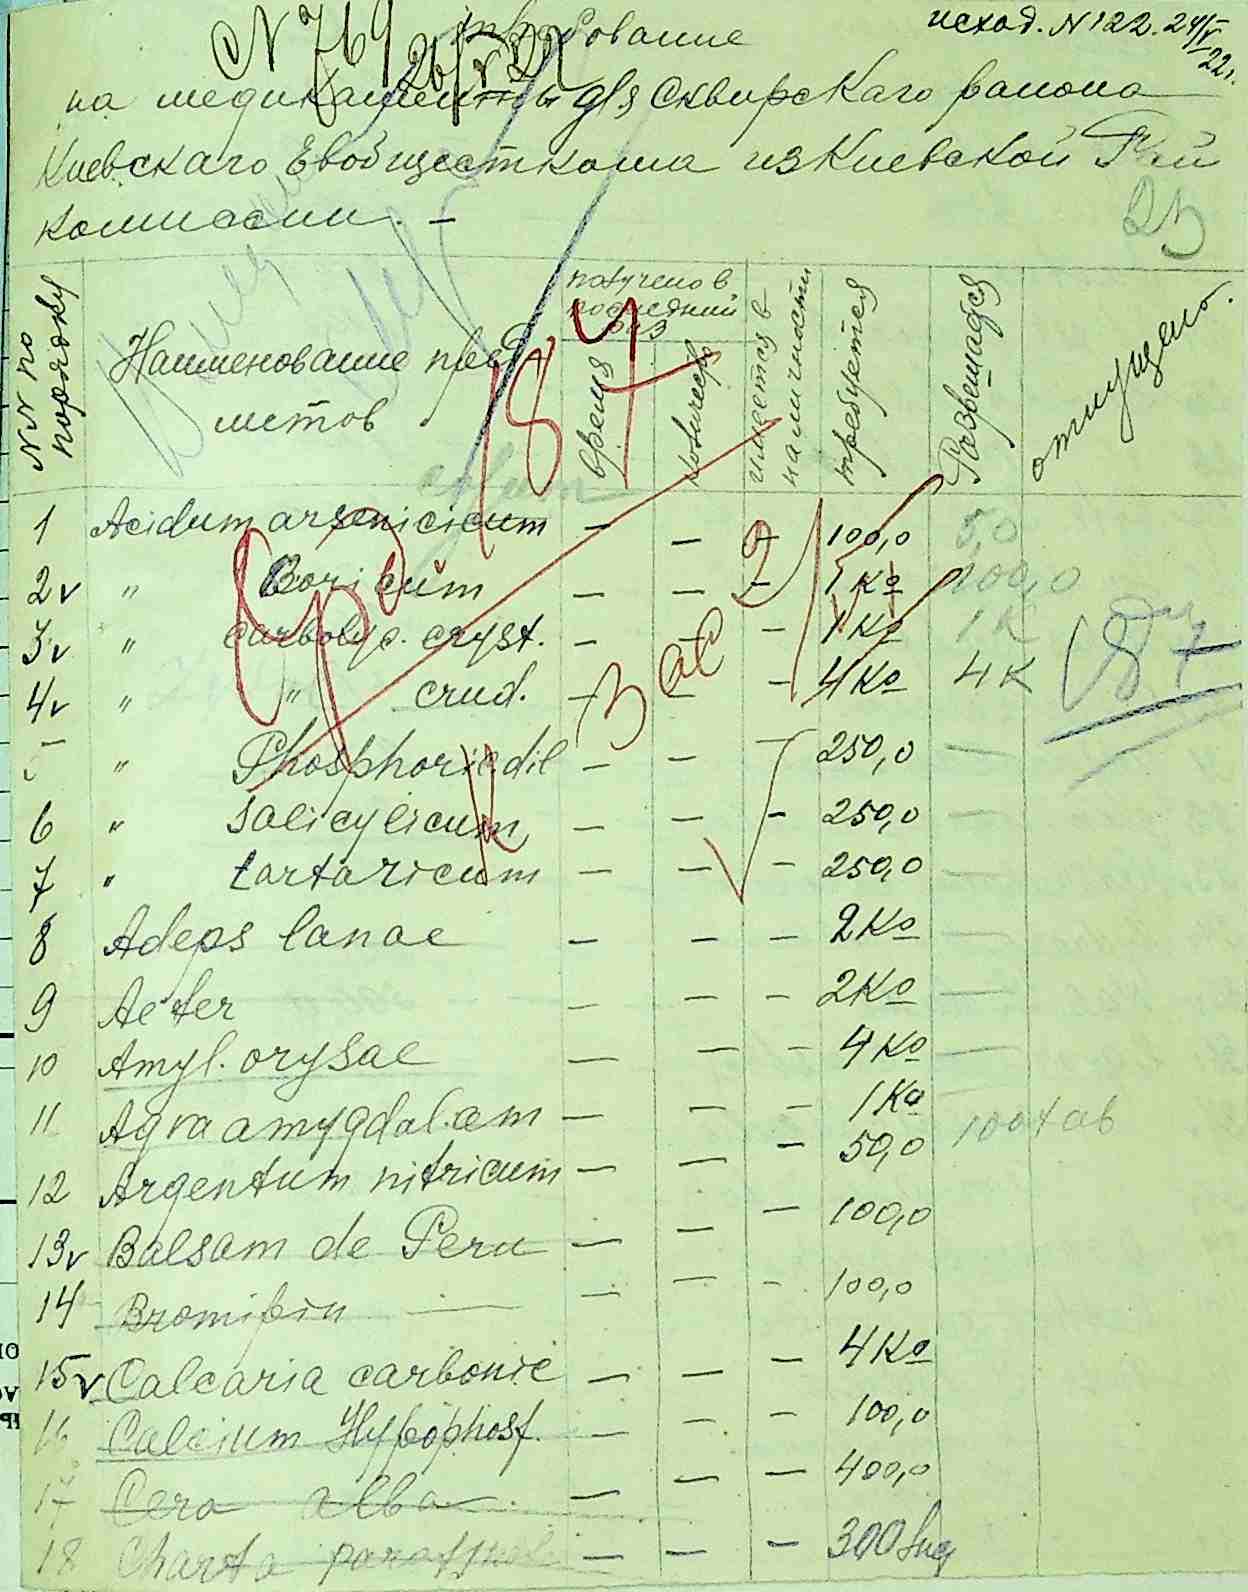 исход. N 122. 24/V 22 г.
N 769 26/V 22
требование
на медикаменты для Сквирскаго района
Киевскаго Евобщесткома из Киевской Рай
комиссии. —
23
NN по порядку
Наименование пред
метов
получено в последний раз
время
количеств
имеется в наличности
требуется
Разрешается
отпущено.
187
1 Acidum arsenicicum — — 100,0 5,0
2 v " Boricum — — — 1 Ko 100,0
3 v " carbolyc. cryst. — — — 1 Ko 1 K
4 v " " crud. — — — 4 Ko 4 K
87
5 " Phosphoric. dil — — — 250,0 —
6 " salicylicum — — — 250,0 —
7 " tartaricum — — — 250,0 —
8 Adeps lanae — — — 2 Ko —
9 Aeter — — — 2 Ko —
10 Amyl. orysae — — — 4 Ko —
11 Aqva amygdal. am — — — 1 Ko
12 Argentum nitricum — — — 50,0 100 tab
13 v Balsam de Peru — — — 100,0
14 Bromipin — — — 100,0
15 v Calcaria carbonic — — — 4 Ko
16 Calcium Hypophosf. — — — 100,0
17 Cera alba — — — 400,0
18 Charta — — — 300